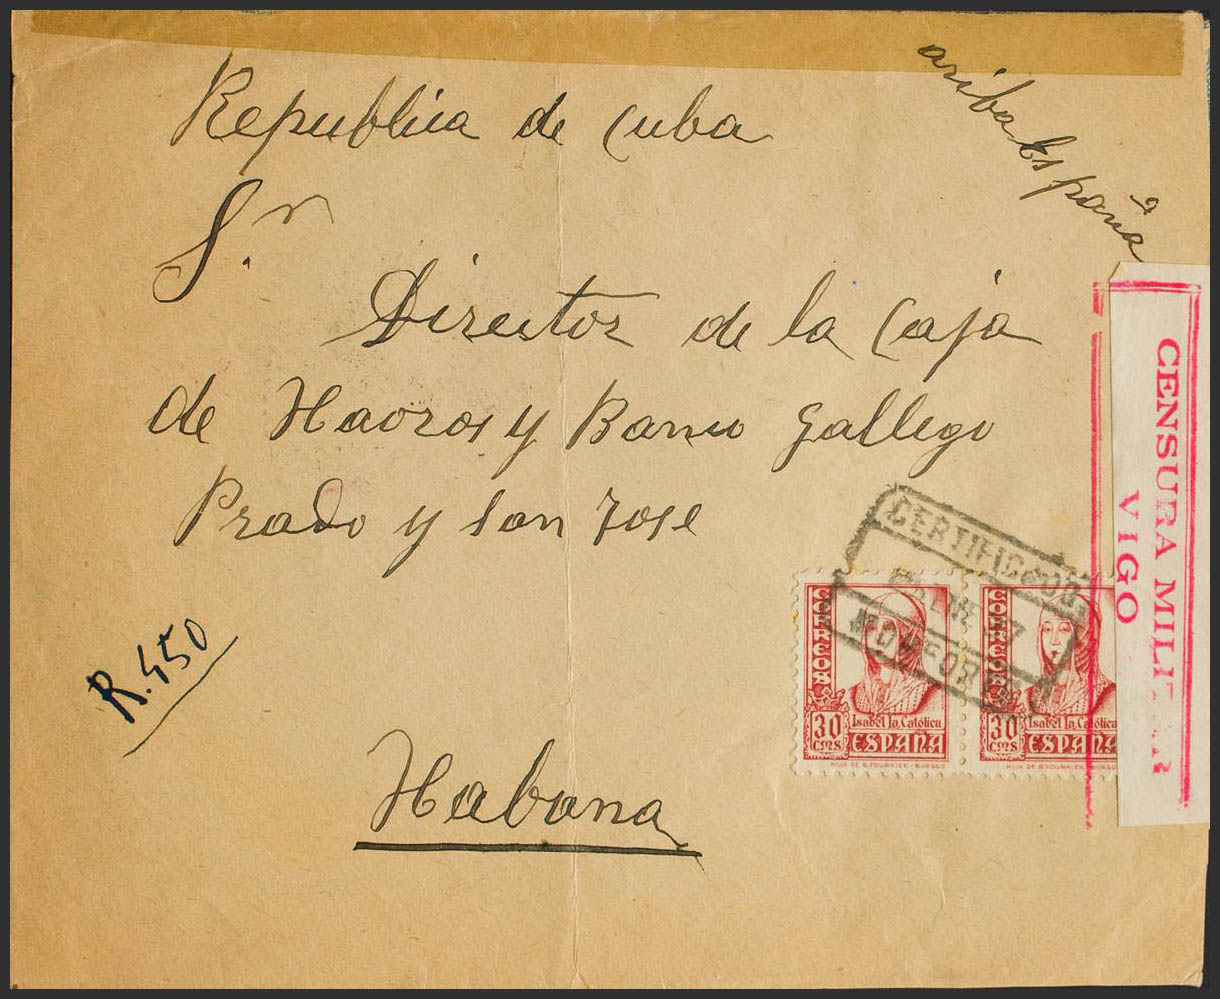 Republica de Cuba
ariba España
Sr.
Director de la Caja
de Haoros y Banco Gallego
Prado y San Jose
R. 450
Habana
CERTIFICADO
ENE 37
CORREOS
30
CMS
Isabel la Católica
ESPAÑA
HIJA DE B. FOURNIER - BURGOS
CORREOS
30
CMS
Isabel la Católica
ESPAÑA
HIJA DE B. FOURNIER - BURGOS
CENSURA MILITAR
VIGO